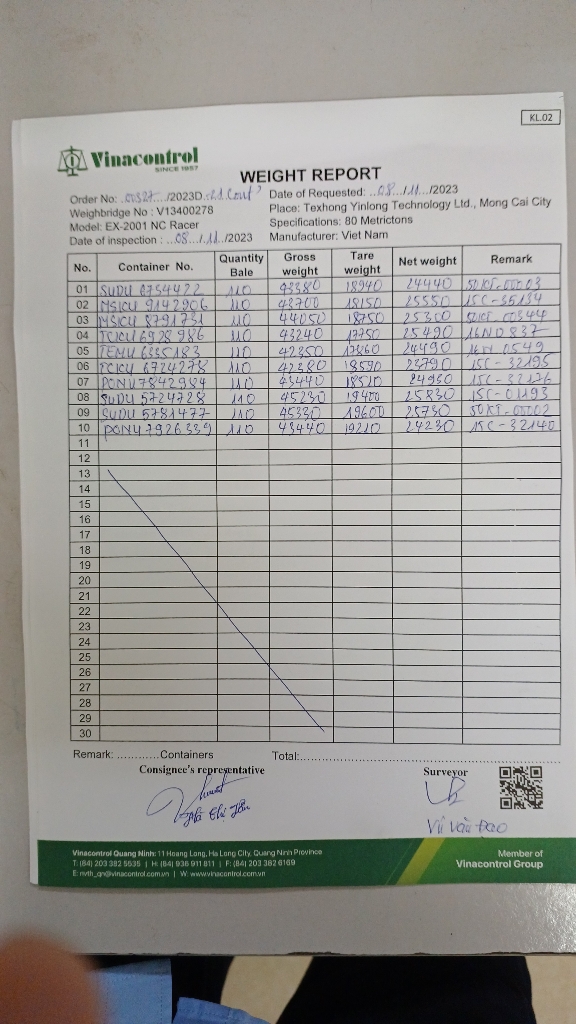 KL.02
Vinacontrol
SINCE 1957
WEIGHT REPORT
Order No: ..00327../2023D
Date of Requested: ..08../.11.../2023
Weighbridge No : V13400278
Place: Texhong Yinlong Technology Ltd., Mong Cai City
Model: EX-2001 NC Racer
Specifications: 80 Metrictons
Date of inspection : ..08../.11./2023
Manufacturer: Viet Nam
No. Container No. Quantity Bale Gross weight Tare weight Net weight Remark
01 SUDU 6754422 110 43380 18940 24440 50KT-00003
02 MSKU 9142906 110 43700 18150 25550 15C-35134
03 110 44050 18750 25300 50KT-00344
04 TCKU 6928986 110 43240 17750 25490 16N0837
05 TEMU 6335183 110 42350 17860 24490 16N 0549
06 TCKU 6724278 110 42380 18590 23790 15C-32195
07 PONU 7842984 110 43440 18510 24930
08 SUDU 5724728 110 45230 19400 25830 15C-01193
09 SUDU 5781477 110 45330 19600 25730 50KT-00002
10 PONU 7926339 110 43440 19210 24230 15C-32140
11
12
13
14
15
16
17
18
19
20
21
22
23
24
25
26
27
28
29
30
Remark: .............Containers Total:
Consignee's representative Surveyor
Vũ Văn Đạo
Vinacontrol Quang Ninh: 11 Hoang Long, Ha Long City, Quang Ninh Province
T: (84) 203 382 5535 | H: (84) 936 911 811 | F: (84) 203 382 6169
E: nvth_qn@vinacontrol.com.vn | W: www.vinacontrol.com.vn
Member of
Vinacontrol Group